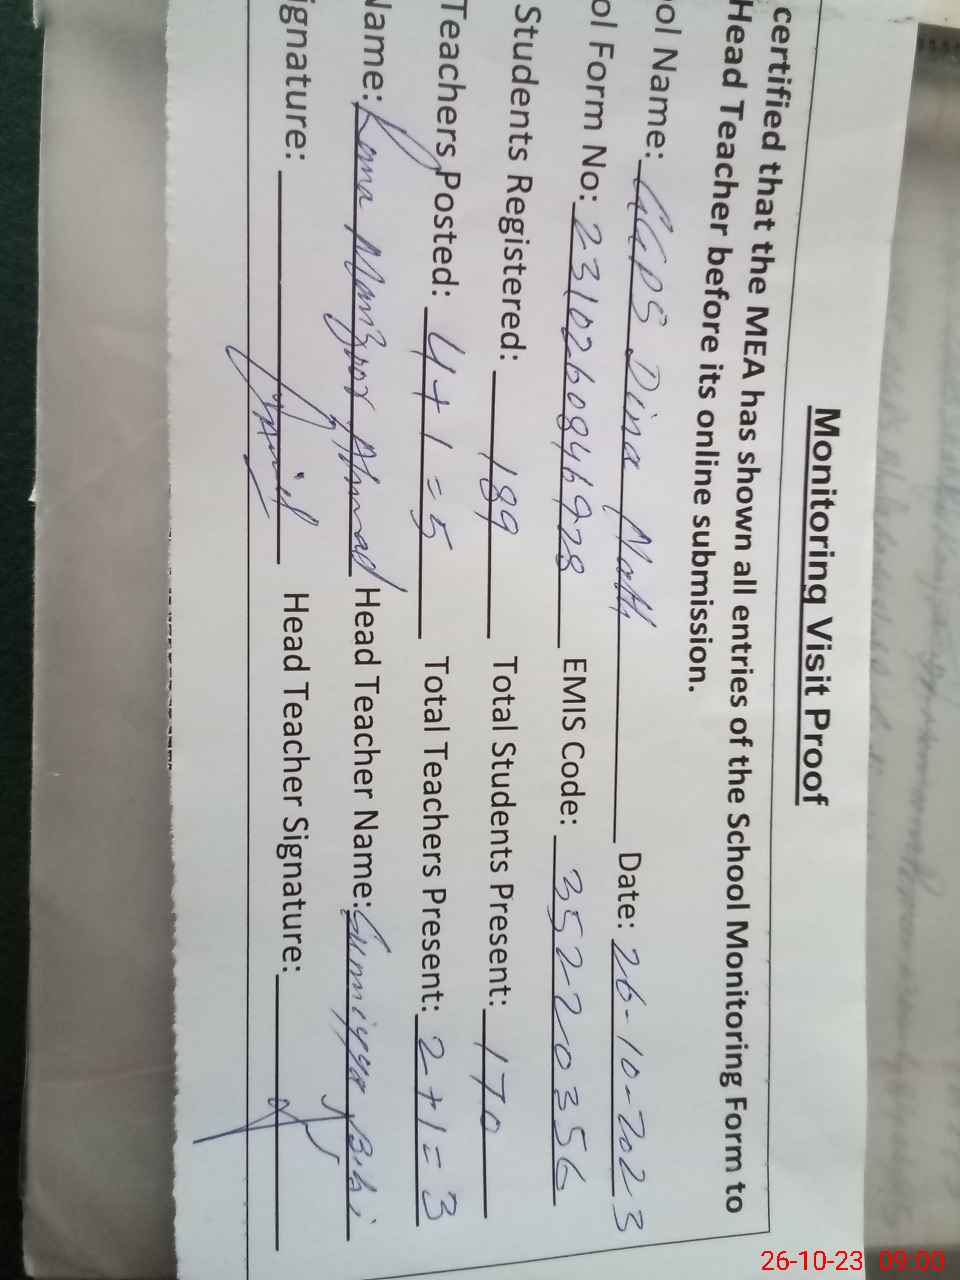 Monitoring Visit Proof
certified that the MEA has shown all entries of the School Monitoring Form to
Head Teacher before its online submission.
ol Name: GGPS Dina Nath Date: 26-10-2023
ol Form No: 2310260846928 EMIS Code: 35220356
Students Registered: 189 Total Students Present: 170
Teachers Posted: 4+1=5 Total Teachers Present: 2+1=3
Name: Rana Manzoor Ahmad Head Teacher Name: Sumiyya Bibi
ignature: Head Teacher Signature:
26-10-23 09:00